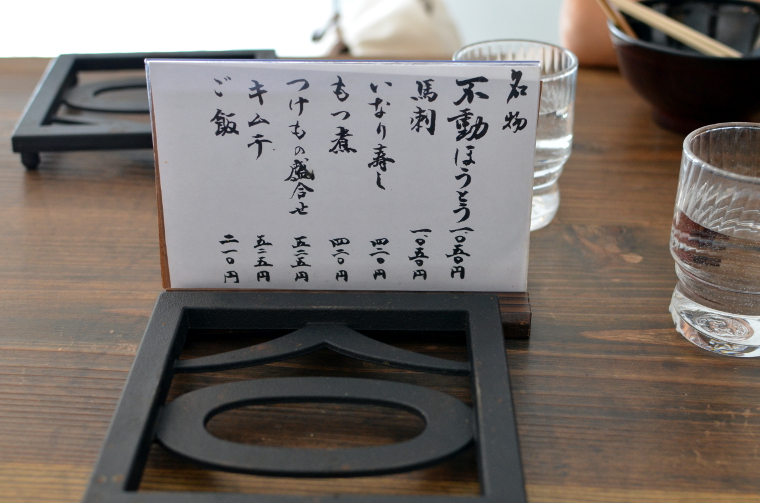 名物
不動ほうとう 一、〇五〇円
馬刺 一、〇五〇円
いなり寿し 四二〇円
もつ煮 四二〇円
つけもの盛合せ 五二五円
キムチ 五二五円
ご飯 二一〇円